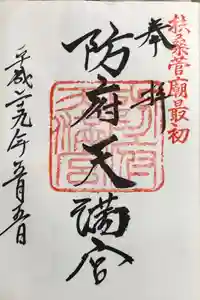 扶桑菅廟最初
奉拝
防府天満宮
平成二十九年五月五日